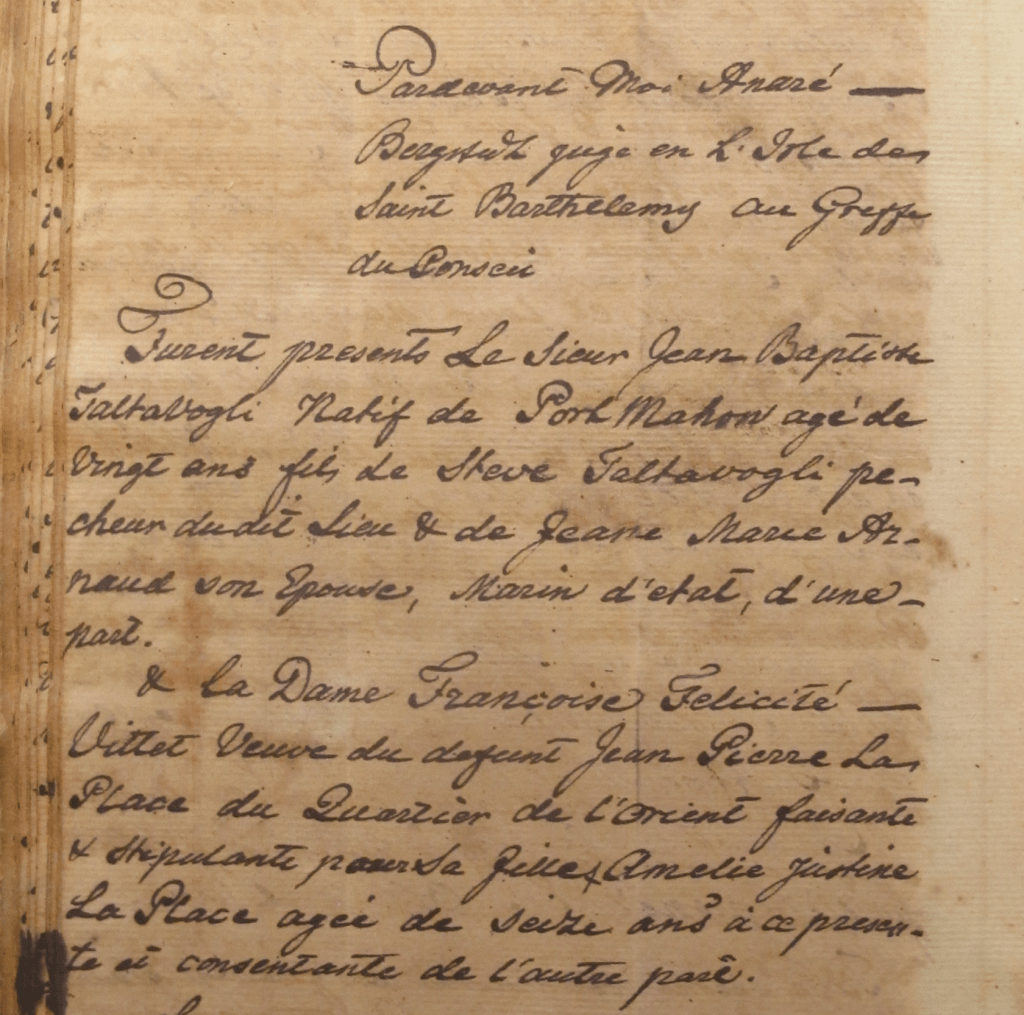 Pardevant Moi André —
Bergstedt juge en L'Isle de
Saint Barthelemy au Greffe
du Conseil
Furent presents Le Sieur Jean Baptiste
Taltavogli Natif de Port Mahon agé de
Vingt ans fils de Steve Taltavogli pe-
cheur dudit Lieu & de Jeane Marie Ar-
naud son Epouse, Marin d'etat, d'une-
part.
& la Dame Françoise Felicité —
Vittet Veuve du defunt Jean Pierre La
Place du Quartier de l'Orient faisante
& stipulante pour sa fille Amelie Justine
La Place agée de seize ans à ce presen-
te et consentante de l'autre part.